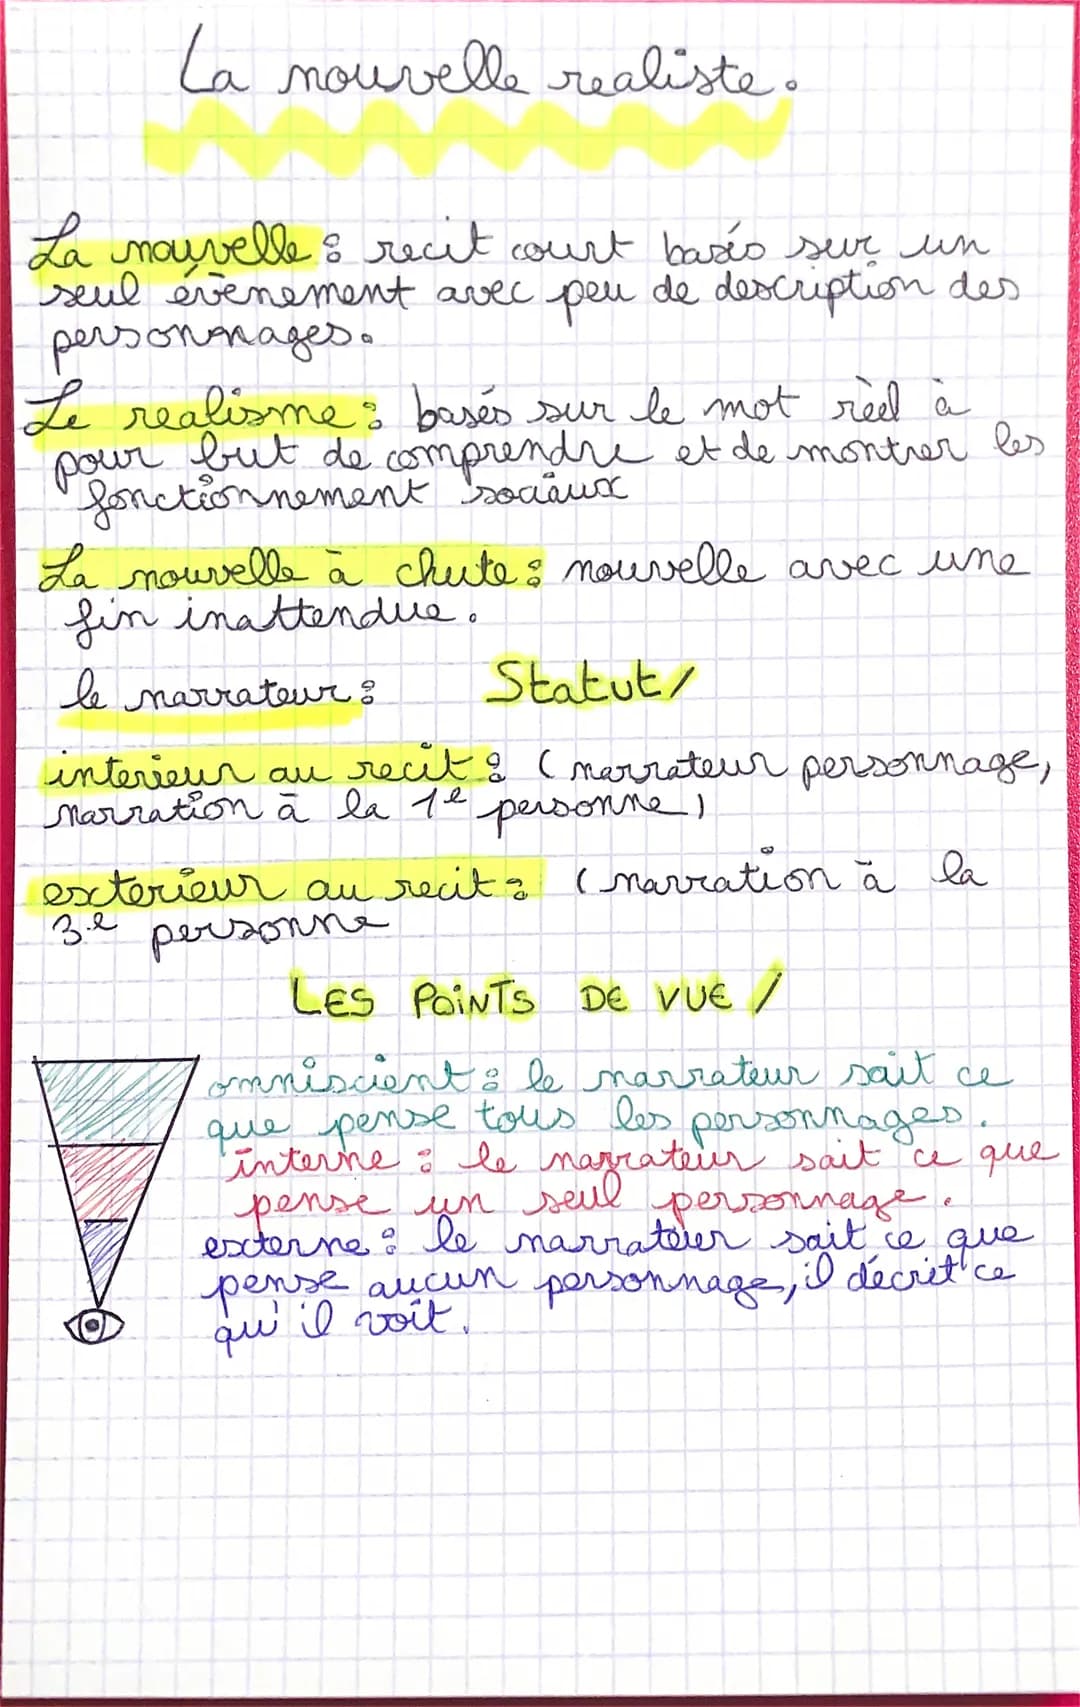 La nouvelle realiste.
La nouvelle : recit court basés sur un
seul évènement avec peu de description des
personnages.
Le realisme : basés sur le mot rèel à
pour but de comprendre et de montrer les
fonctionnement sociaux
La nouvelle à chute : nouvelle avec une
fin inattendue.
le narrateur : Statut/
interieur au recit : (narrateur personnage,
narration à la 1e personne)
exterieur au recit : (narration à la
3.e personne
LES POiNTS DE VUE /
omniscient : le narrateur sait ce
que pense tous les personnages.
interne : le narrateur sait ce que
pense un seul personnage.
externe : le narrateur sait ce que
pense aucun personnage, il décrit ce
qu'il voit.